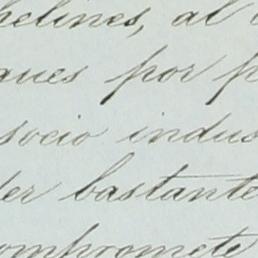 helines, al
ques por p
socio indus
der bastante
compromete